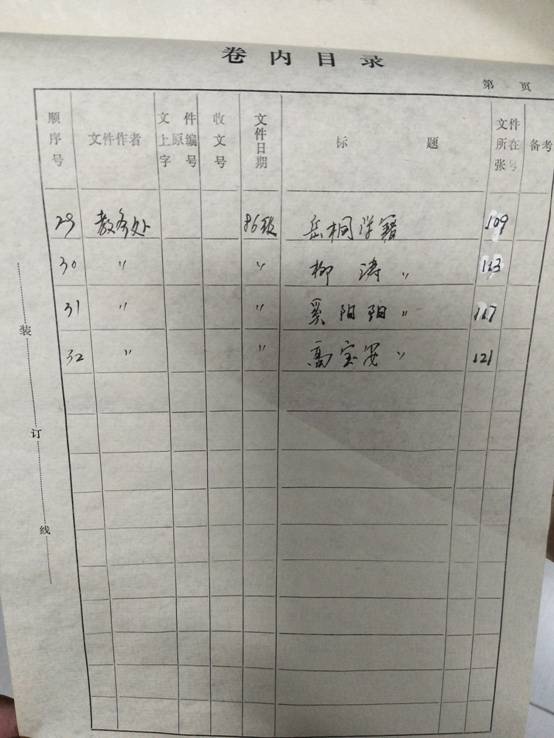 卷内目录
第 页
顺序号 文件作者 文件上原编字号 收文号 文件日期 标题 文件所在张号 备考
29 教务处 86级 岳桐学籍 109
30 〃 〃 柳涛 〃 113
31 〃 〃 奚阳阳 〃 117
32 〃 〃 高宝 〃 121
装
订
线